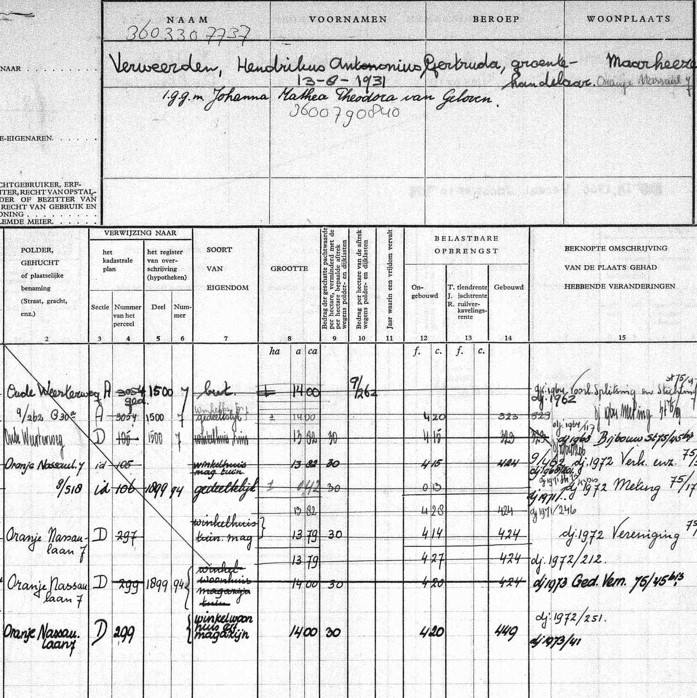 NAAM VOORNAMEN BEROEP WOONPLAATS
3603307737
NAAR
Verweerden, Hendrikus Antononius Gertruda, groente- Maarheeze
13-8-1931 handelaar. Oranje Nassaul 7
i.g.g.m Johanna Mathea Theodora van Geloven.
3600790840
E-EIGENAREN
CHTGEBRUIKER, ERF-
TER, RECHT VAN OPSTAL-
DER OF BEZITTER VAN
RECHT VAN GEBRUIK EN
ONING
LEMDE MEIER.
POLDER,
GEHUCHT
of plaatselijke
benaming
(Straat, gracht,
enz.)
VERWIJZING NAAR
het
kadastrale
plan
het register
van over-
schrijving
(hypotheken)
Sectie
Nummer
van het
perceel
Deel
Num-
mer
SOORT
VAN
EIGENDOM
GROOTTE
Bedrag der geschatte pachtwaarde
per hectare, verminderd met de
per hectare bepaalde aftrek
wegens polder- en dijklasten
Bedrag per hectare van de aftrek
wegens polder- en dijklasten
Jaar waarin een vrijdom vervalt
BELASTBARE
OPBRENGST
On-
gebouwd
T. tiendrente
J. jachtrente
R. ruilver-
kavelings-
rente
Gebouwd
BEKNOPTE OMSCHRIJVING
VAN DE PLAATS GEHAD
HEBBENDE VERANDERINGEN
2 3 4 5 6 7 8 9 10 11 12 13 14 15
ha a ca f. c. f. c.
Oude Weerterweg A 3054 1500 7 14 00 9/262
dj. 1962
9/262 A 3054 1500 7 gedeeltelijk 14 00 4 20 323
Oude Weerterweg D 106 1500 7 13 82 30 4 15 323 Bijbouw 75/45
Oranje Nassaul. 7 id 106 winkelhuis 13 82 30 4 15 424 dj. 1972 Verk. enz. 75/
mag. tuin
8/518 id 106 1899 94 gedeeltelijk 0 42 30 0 13 dj. 1972 Meting 75/17
dj 1971.
13 82 4 28 424 dj 1971/246
Oranje Nassau- D 297 winkelhuis 13 79 30 4 14 424 dj. 1972 Vereniging 75
laan 7 tuin. mag
13 79 4 27 424 dj. 1972/212.
Oranje Nassau D 299 1899 94 winkel 14 00 30 4 20 424 dj 1973 Ged. Vern. 75/45 bis
laan 7 woonhuis
magazijn
tuin
dj. 1972/251.
Oranje Nassau. D 299 winkelwoon 14 00 30 4 20 449 dj 1973/41
laan 7 huis
magazijn